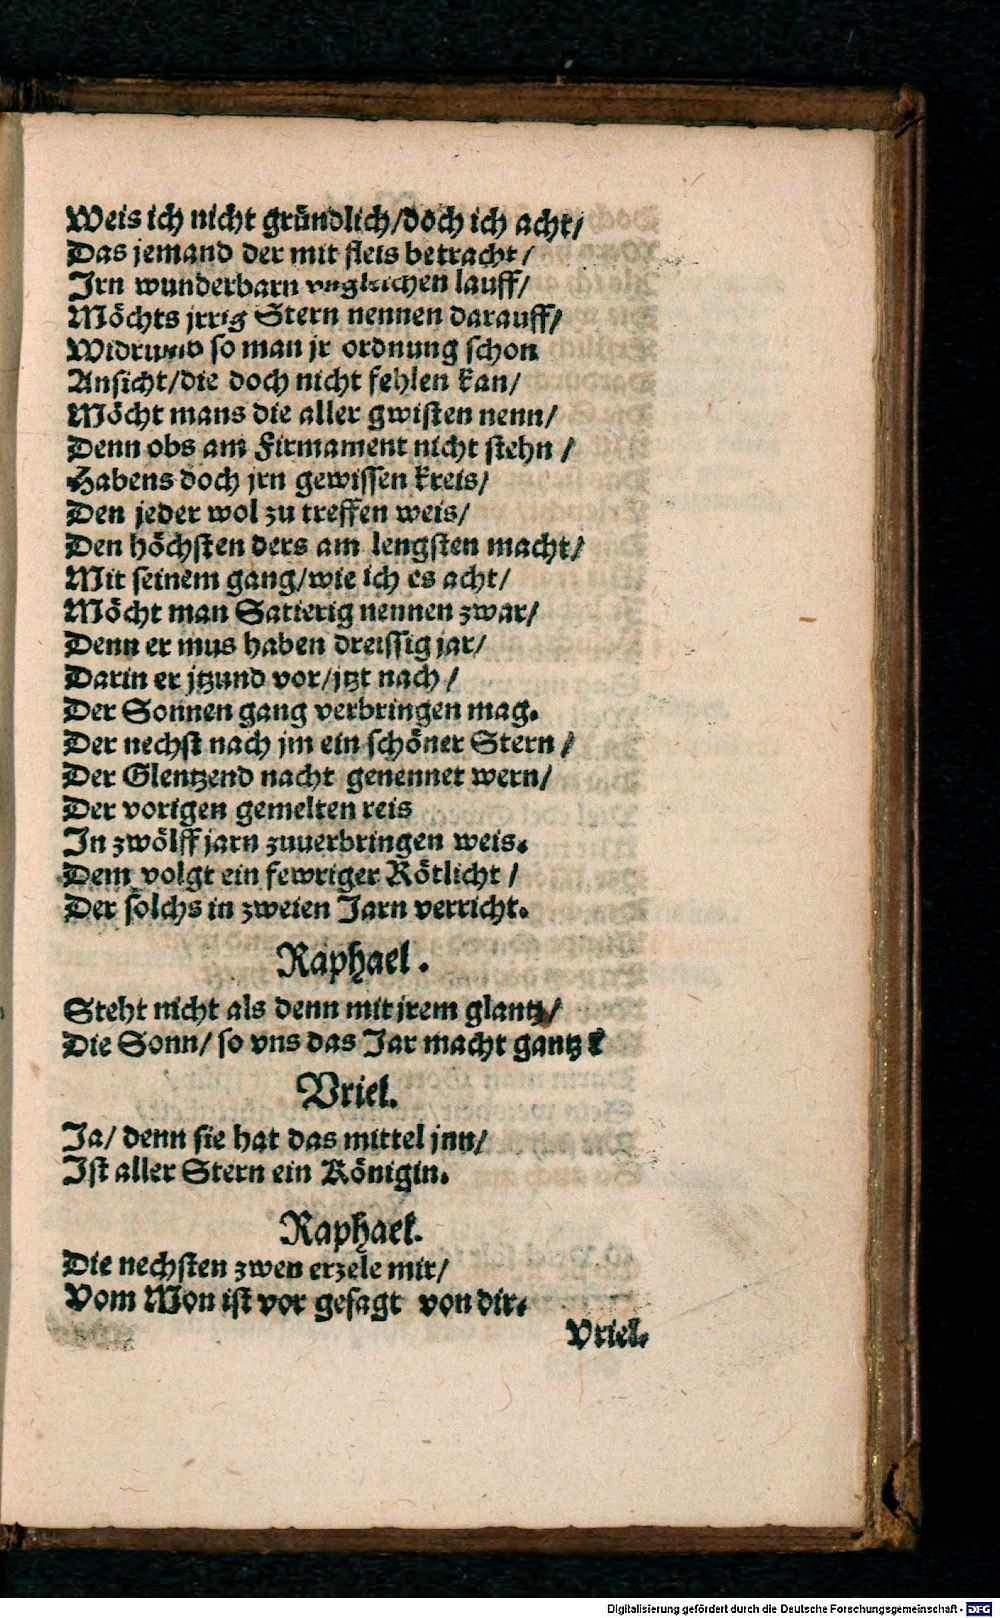 Weis ich nicht gründlich/doch ich acht/
Das jemand der mit fleis betracht/
Irn wunderbarn vngleichen lauff/
Möchts jrrig Stern nennen darauff/
Widrumb so man jr ordnung schon
Ansicht/die doch nicht fehlen kan/
Möcht mans die aller gwisten nenn/
Denn obs am Firmament nicht stehn /
Habens doch jrn gewissen kreis/
Den jeder wol zu treffen weis/
Den höchsten ders am lengsten macht/
Mit seinem gang/wie ich es acht/
Möcht man Satierig nennen zwar/
Denn er mus haben dreissig jar/
Darin er jtzund vor/jtzt nach/
Der Sonnen gang verbringen mag.
Der nechst nach jm ein schöner Stern /
Der Glentzend nacht genennet wern/
Der vorigen gemelten reis
In zwölff jarn zuuerbringen weis.
Dem volgt ein fewriger Rötlicht /
Der solchs in zweien Jarn verricht.
Raphael.
Steht nicht als denn mit jrem glantz/
Die Sonn/ so vns das Jar macht gantz
Vriel.
Ja/ denn sie hat das mittel jnn/
Ist aller Stern ein Königin.
Raphael.
Die nechsten zwen erzele mir/
Vom Mon ist vor gesagt von dir.
Vriel.
Digitalisierung gefördert durch die Deutsche Forschungsgemeinschaft - DFG